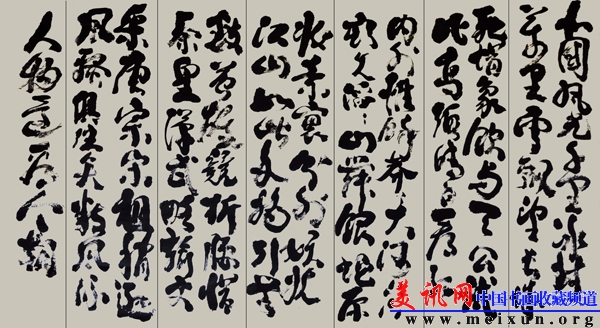 北国风光千里冰封
万里雪飘望长城
驰蜡象欲与天公试
比高须晴日看红
内外惟余莽莽大河上下
顿失滔滔山舞银蛇原
妆素裹分外妖娆
江山如此多娇引无
数英雄竞折腰惜
秦皇汉武略输文
采唐宗宋祖稍逊
风骚俱往矣数风流
人物还看今朝
美讯网 中国书画收藏频道
www.meixun.org